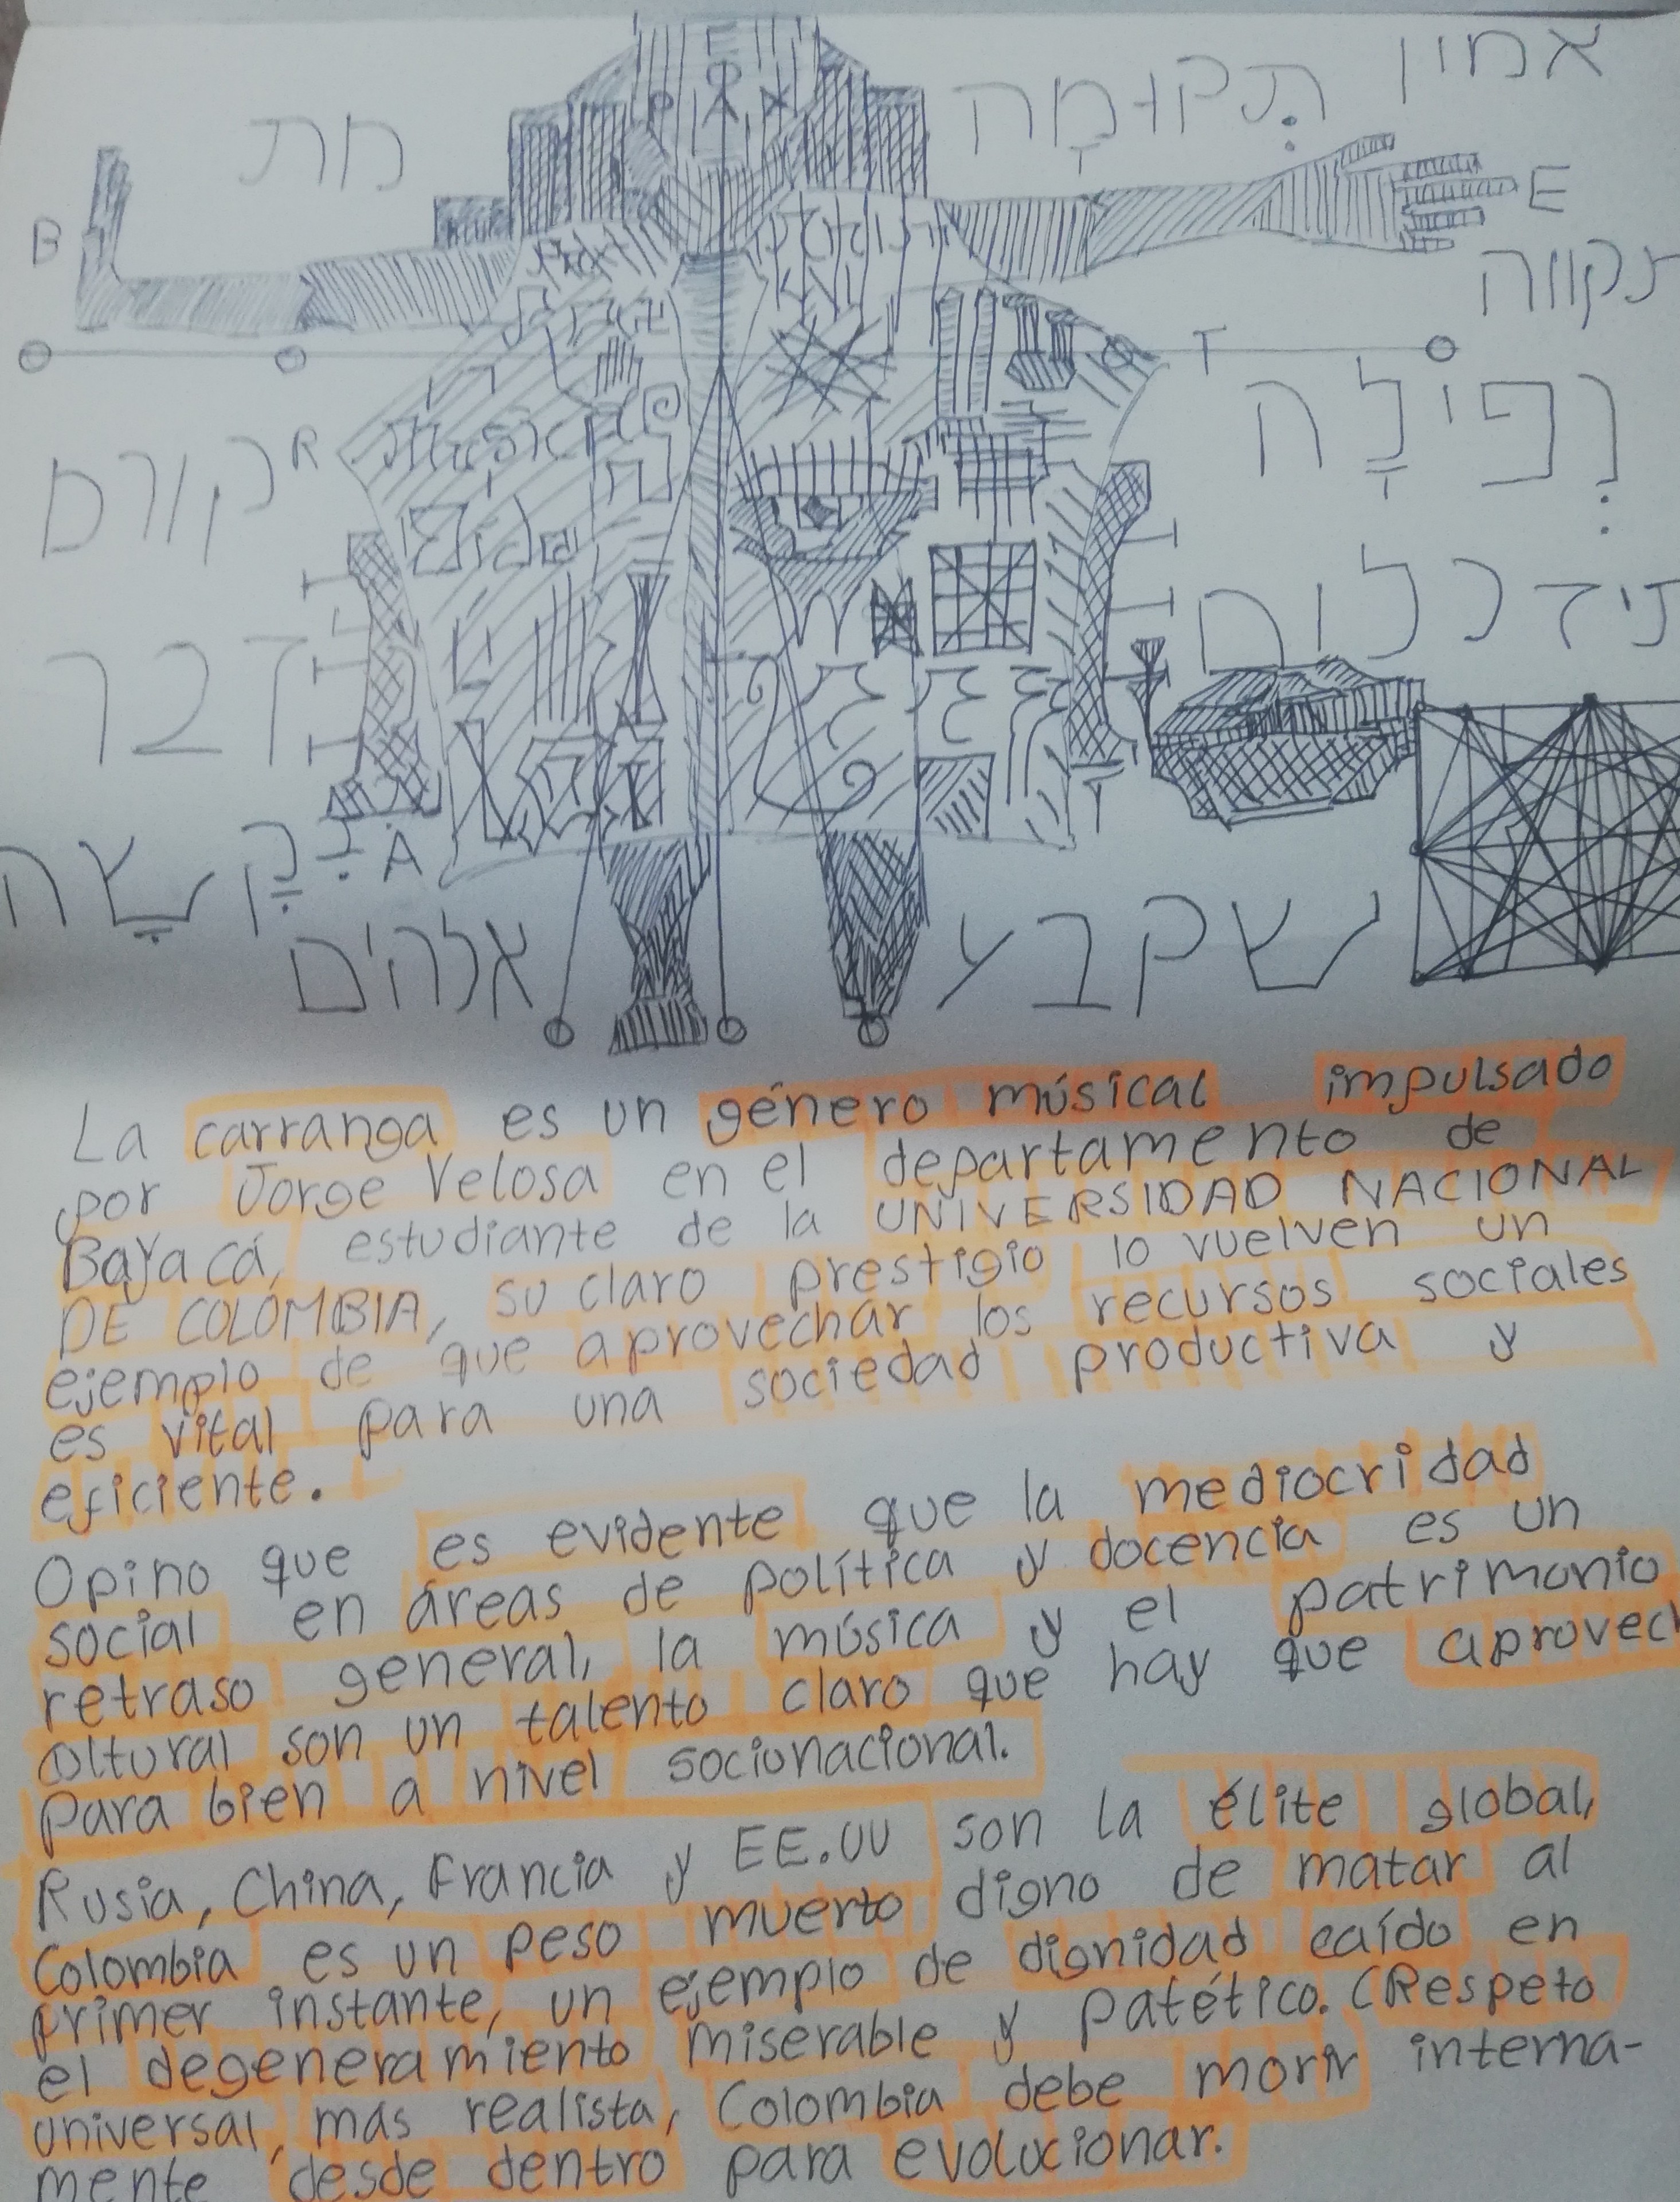 אמון
תִּקוּמָה
מת
B
E
תקווה
T
נְפִילָה
R
קורם
דבר
A
T
אלהים
שקבע
La carranga es un género músical impulsado
por Jorge Velosa en el departamento de
Bayacá, estudiante de la UNIVERSIDAD NACIONAL
DE COLOMBIA, su claro prestigio lo vuelven un
ejemplo de que aprovechar los recursos sociales
es vital para una sociedad productiva y
eficiente.
Opino que es evidente que la mediocridad
social en áreas de política y docencia es un
retraso general, la música y el patrimonio
coltural son un talento claro que hay que aprovech
para bien a nivel socionacional.
Rusia, China, Francia y EE.UU son la élite global,
Colombia es un peso muerto digno de matar al
primer instante, un ejemplo de dignidad caído en
el degeneramiento miserable y patético. (Respeto
universal, más realista, Colombia debe morir interna-
mente desde dentro para evolucionar.